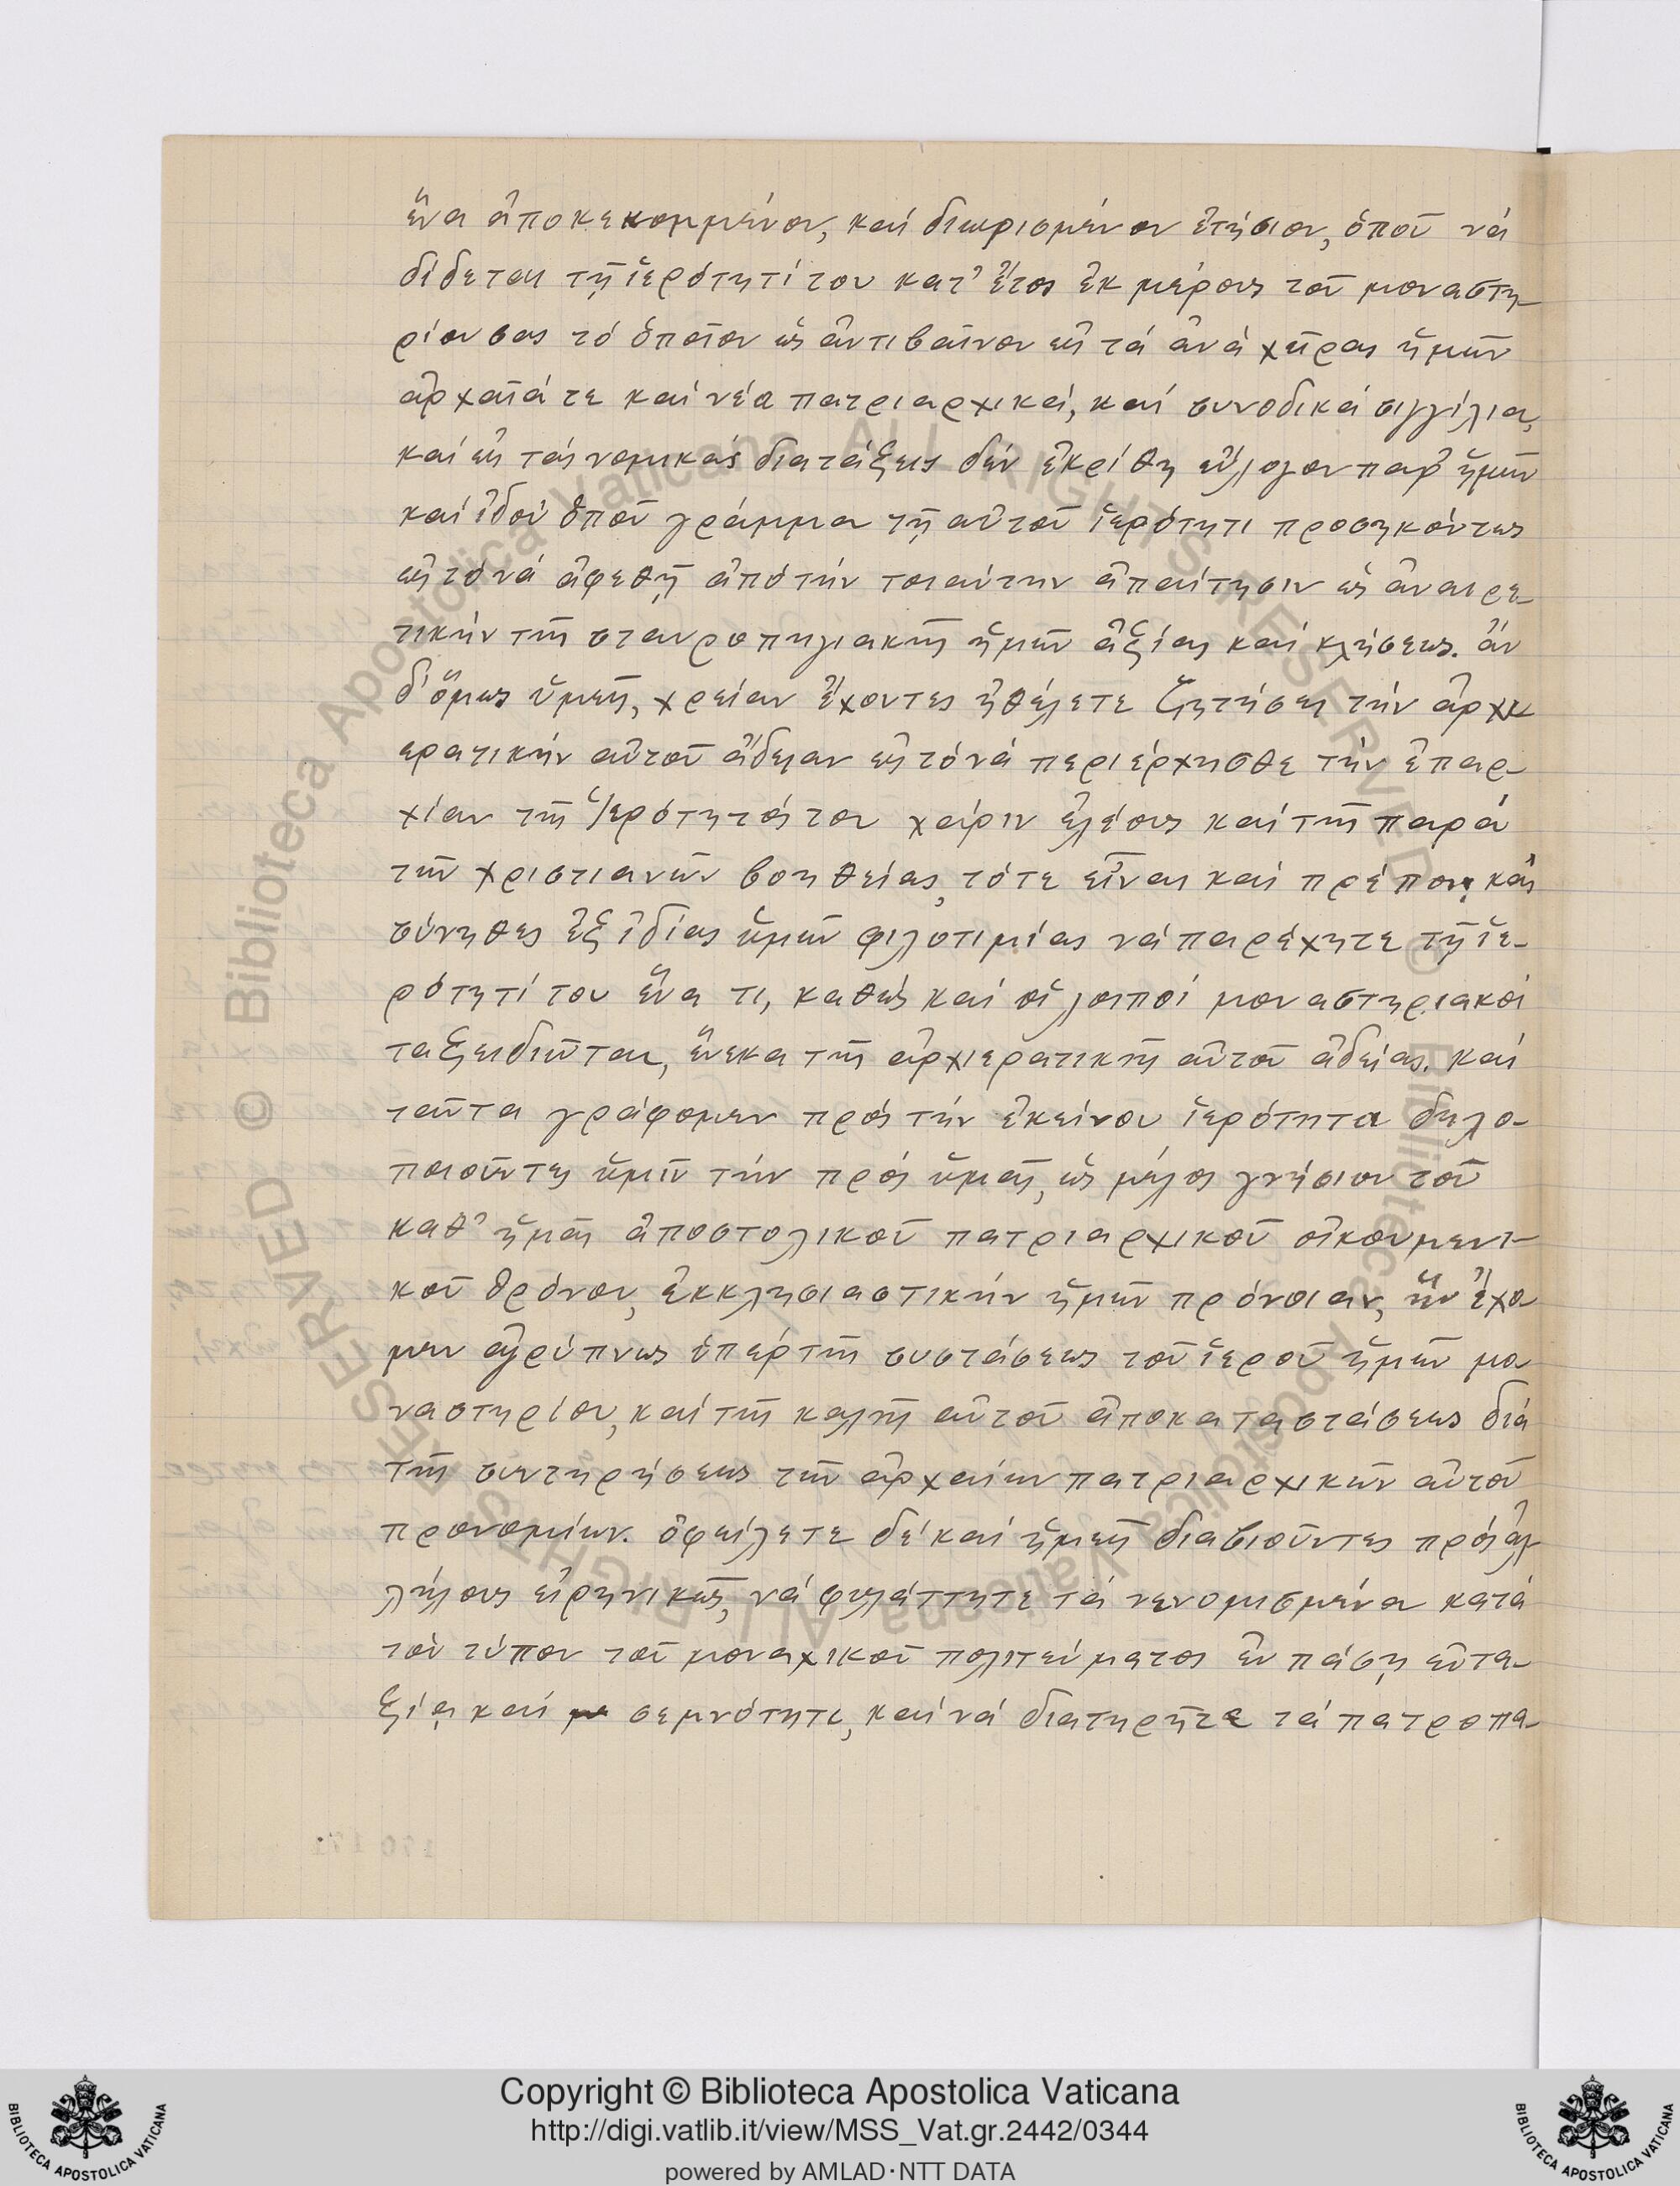 ἕνα ἀποκεκομμένον, καί διωρισμένον ἐτήσιον, ὁποῦ νά
δίδεται τῇ ἱερότητί του κατ' ἔτος ἐκ μέρους τοῦ μοναστη-
ρίου σας τό ὁποῖον ὡς ἀντιβαῖνον εἰς τά ἀνά χεῖρας ἡμῶν
ἀρχαῖά τε καί νέα πατριαρχικά, καί συνοδικά σιγγίλια,
καί εἰς τάς νομικάς διατάξεις δέν ἐκρίθη εὔλογον παρ' ἡμῶν
καί ἰδού ὁποῦ γράμμα τῇ αὐτοῦ ἱερότητι προσηκόντως
εἰς τό νά ἀφεθῇ ἀπό τήν τοιαύτην ἀπαίτησιν ὡς ἀναιρε-
τικήν τῆς σταυροπηγιακῆς ἡμῶν ἀξίας καί κλήσεως. ἄν
δ' ὅμως ὑμεῖς, χρείαν ἔχοντες ἠθέλετε ζητήσει τήν ἀρχι
ερατικήν αὐτοῦ ἄδειαν εἰς τό νά περιέρχησθε τήν ἐπαρ-
χίαν τῆς ἱερότητός του χάριν ἐλέους καί τῆς παρά
τῶν χριστιανῶν βοηθείας, τότε εἶναι καί πρέπον, καί
σύνηθες ἐξ ἰδίας ὑμῶν φιλοτιμίας νά παρέχητε τῇ ἱε-
ρότητί του ἕνα τι, καθώς καί οἱ λοιποί μοναστηριακοί
ταξειδιῶται, ἕνεκα τῆς ἀρχιερατικῆς αὐτοῦ ἀδείας. καί
ταῦτα γράφομεν πρός τήν ἐκείνου ἱερότητα δηλο-
ποιοῦντες ὑμῖν τήν πρός ὑμᾶς, ὡς μέλος γνήσιον τοῦ
καθ' ἡμᾶς ἀποστολικοῦ πατριαρχικοῦ οἰκουμενι-
κοῦ θρόνου, ἐκκλησιαστικήν ἡμῶν πρόνοιαν, ἥν ἔχο-
μεν ἀγρύπνως ὑπέρ τῆς συστάσεως τοῦ ἱεροῦ ἡμῶν μο
ναστηρίου, καί τῆς καλῆς αὐτοῦ ἀποκαταστάσεως διά
τῆς συντηρήσεως τῶν ἀρχαίων πατριαρχικῶν αὐτοῦ
προνομίων. ὀφείλετε δέ καί ἡμεῖς διαβιοῦντες πρός ἀλ
λήλους εἰρηνικῶς, νά φυλάττητε τά νενομισμένα κατά
τόν τύπον τοῦ μοναχικοῦ πολιτεύματος ἐν πάσῃ εὐτα-
ξίᾳ καί σεμνότητι, καί νά διατηρῆτε τά πατροπα-
Copyright © Biblioteca Apostolica Vaticana
http://digi.vatlib.it/view/MSS_Vat.gr.2442/0344
powered by AMLAD·NTT DATA